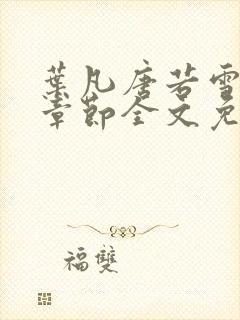 葉凡唐若雪
章節全文免
福雙